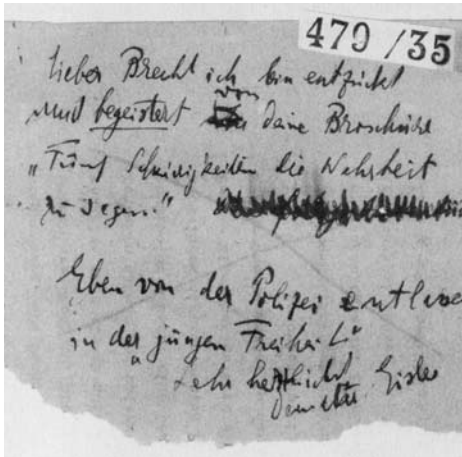 479/35
lieber Brecht ich bin entzückt
und begeistert von deine Broschüre
„Fünf Schwierigkeiten die Wahrheit
zu sagen."
Eben von der Polizei
in der „jungen Freiheit"
sehr herzlichst
dein alter Eisler